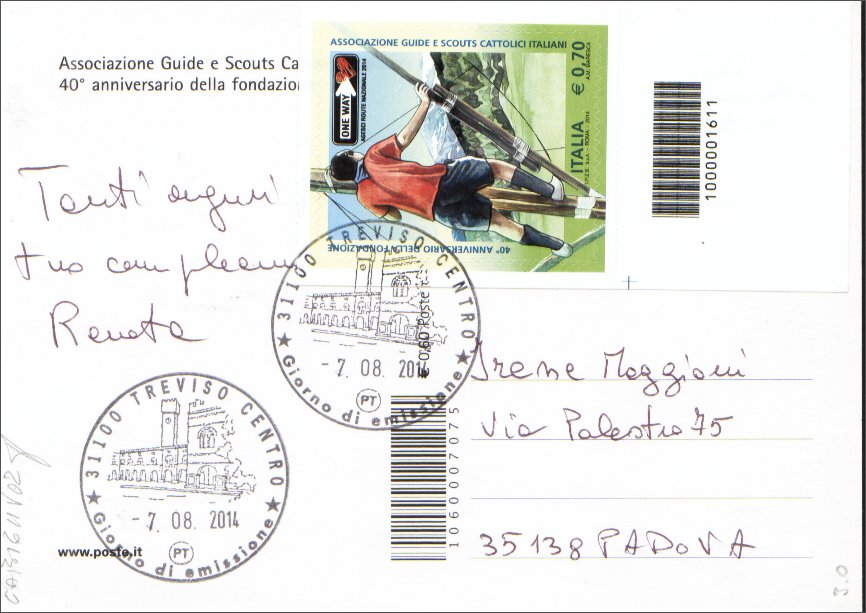 Associazione Guide e Scouts Ca
40° anniversario della fondazio
Tanti auguri
tuo complean
Renata
ASSOCIAZIONE GUIDE E SCOUTS CATTOLICI ITALIANI
ONE WAY
AGESCI ROUTE NAZIONALE 2014
€ 0,70
ITALIA
40° ANNIVERSARIO DELLA FONDAZIONE
1000001611
31100 TREVISO CENTRO
- 7. 08. 2014
PT
Giorno di emissione
€ 0,60 Poste
1060007075
Irene Maggioni
Via Palestro 75
35138 PADOVA
31100 TREVISO CENTRO
- 7. 08. 2014
PT
Giorno di emissione
www.poste.it